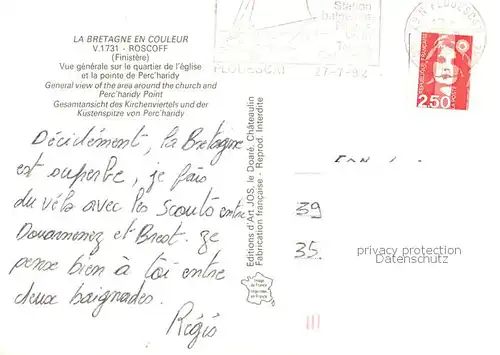 LA BRETAGNE EN COULEUR
V.1731 - ROSCOFF
(Finistère)
Vue générale sur le quartier de l'église
et la pointe de Perc'handy
General view of the area around the church and
Perc'handy Point
Gesamtansicht des Kirchenviertels und der
Küstenspitze von Perc'handy
Décidément, la Bretagne
est superbe, je fais
du vélo avec les scouts entre
Douarnenez et Brest. Je
pense bien à toi entre
deux baignades.
Régis
Editions d'Art JOS, le Doaré, Châteaulin
Fabrication française - Reprod. Interdite
Station
PLOUESCAT 27-7-92
REPUBLIQUE FRANÇAISE
2,50
39
35.
privacy protection
Datenschutz